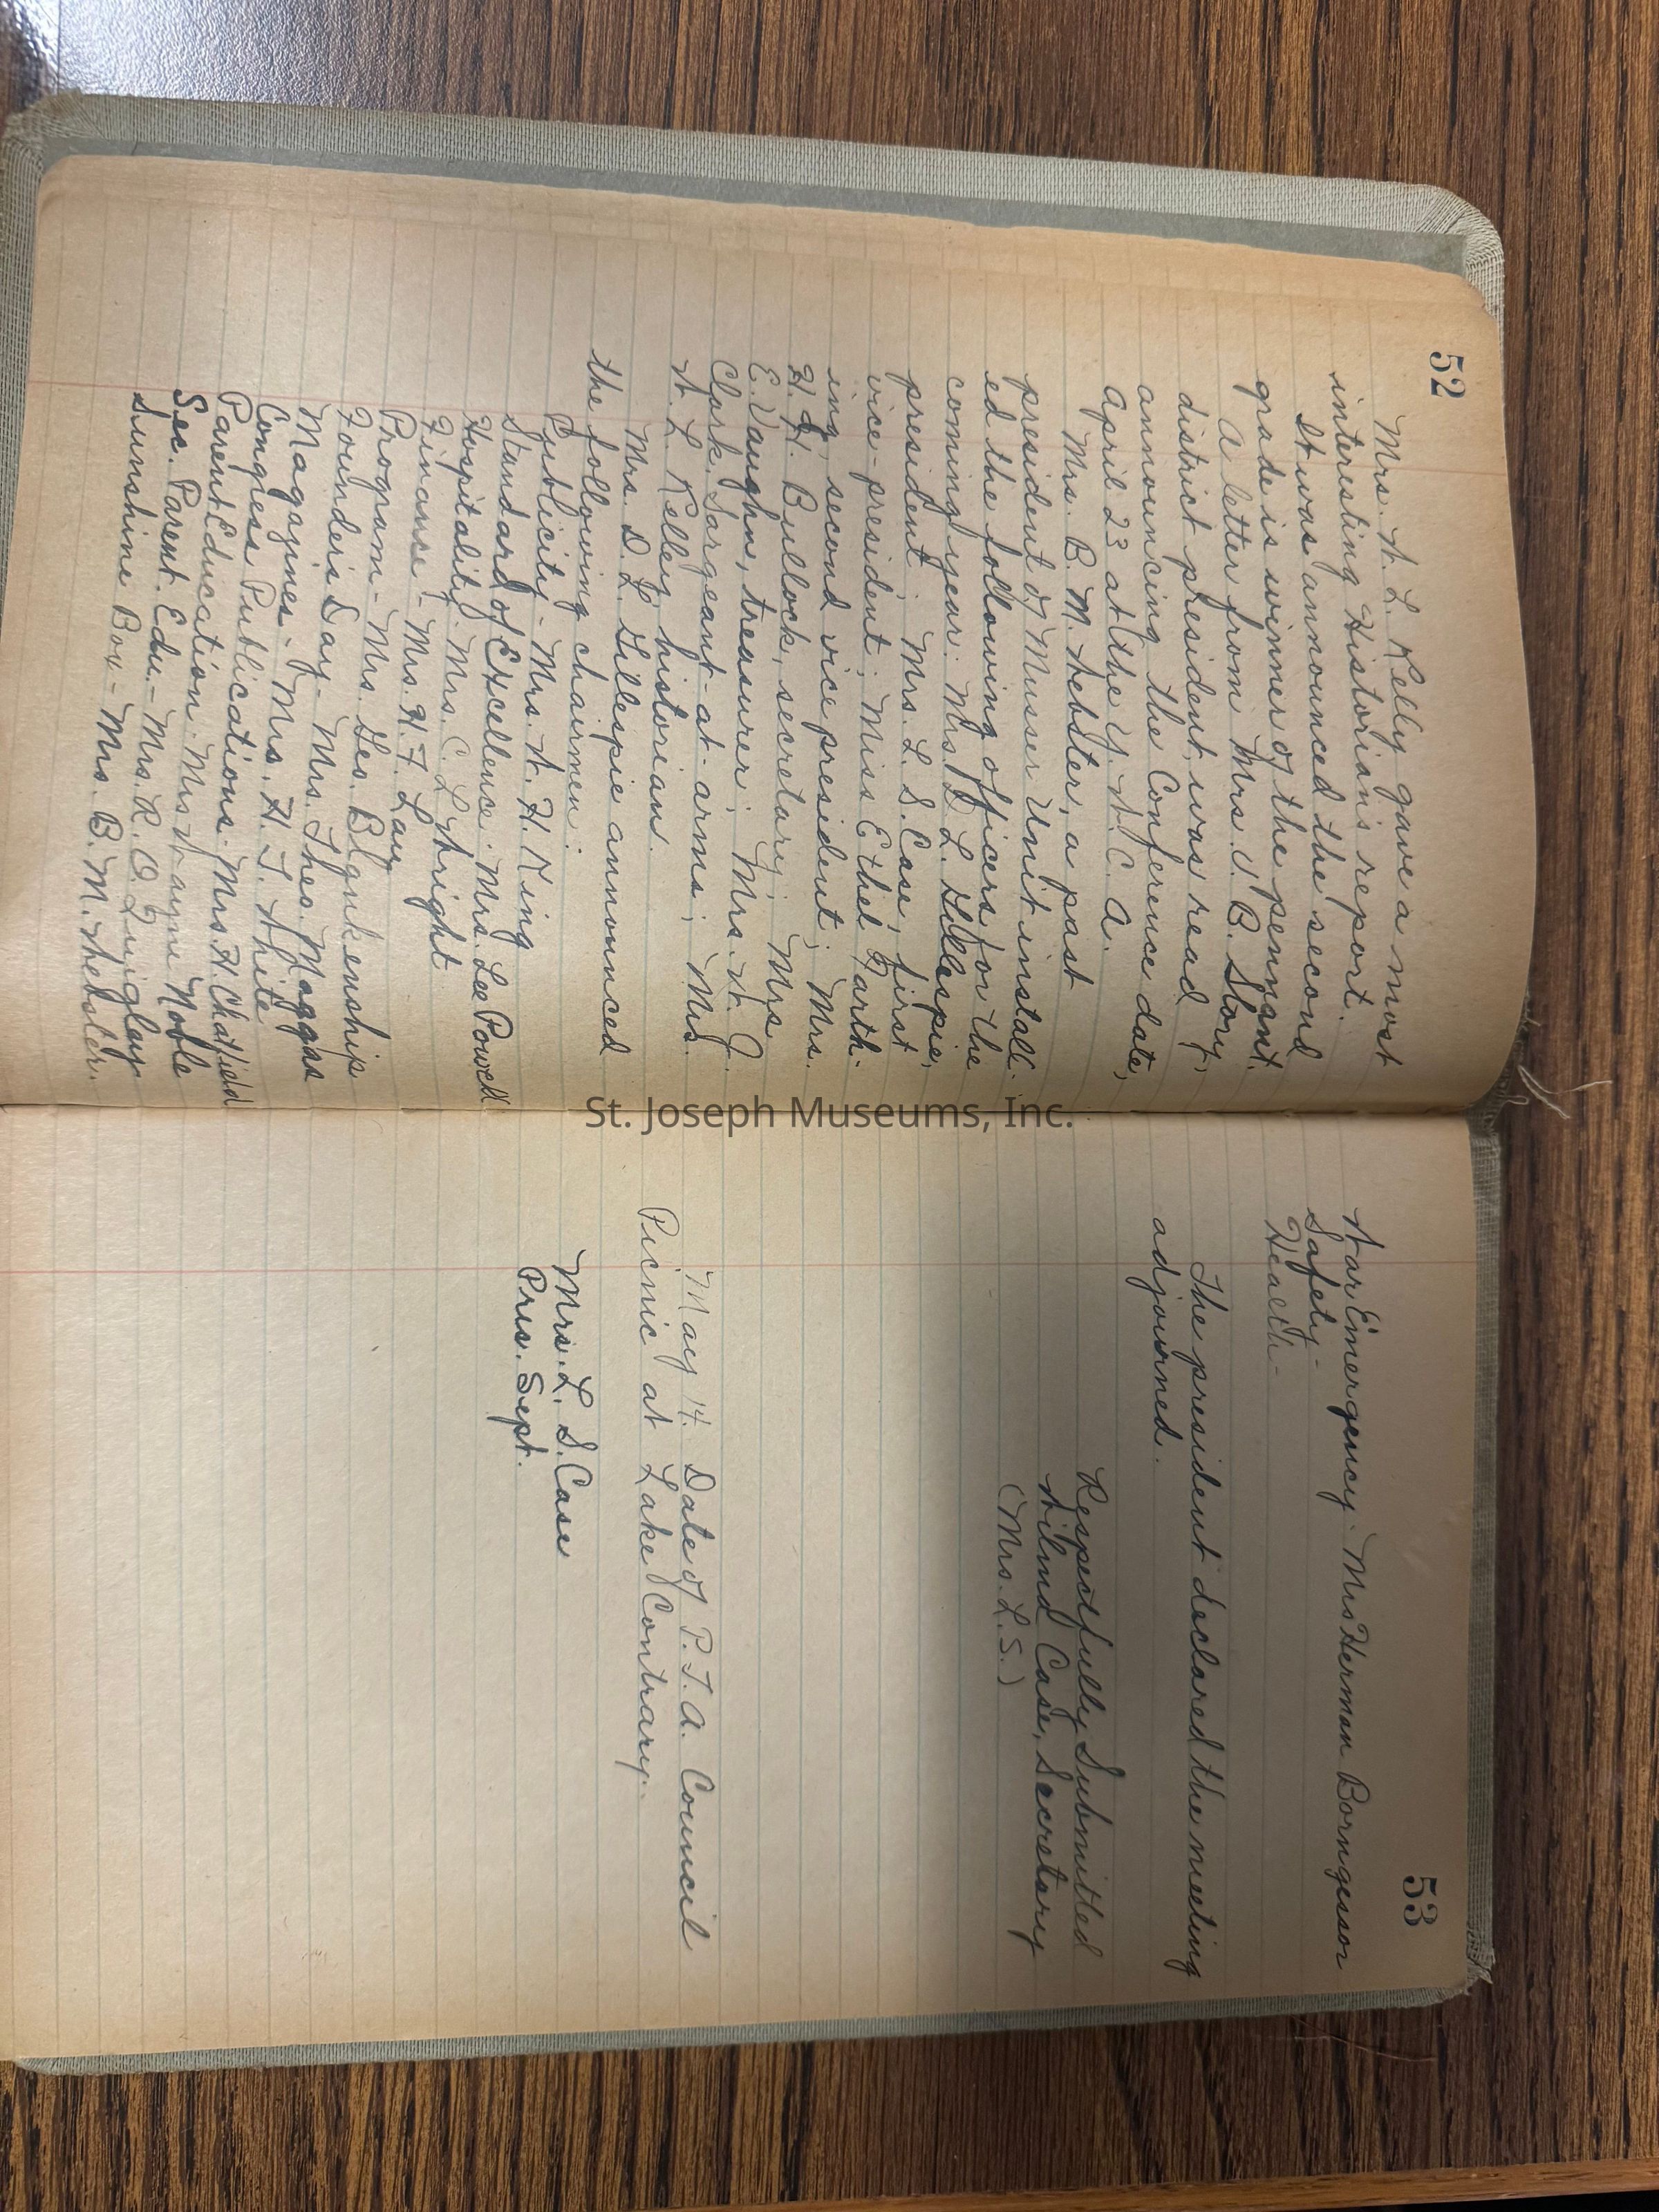 52
Mrs. W. L. Kelly gave a most
interesting Historian's report.
It was announced the second
grade is winner of the pennant.
A letter from Mrs. V. B. Story,
district president, was read,
announcing the Conference date,
April 23 at the Y. W. C. A.
Mrs. B. M. Webster, a past
president of Musser Unit install-
ed the following officers for the
coming year: Mrs. D. L. Gillespie,
president; Mrs. L. S. Case, first
vice-president; Miss Ethel Garth-
ing, second vice president; Mrs.
H. H. Bullock, secretary; Mrs.
E. Vaughn, treasurer; Mrs. W. J.
Clark, Sargeant-at-arms; Mrs.
W. L. Kelley, historian.
Mrs. D. L. Gillespie announced
the following chairmen:
Publicity - Mrs. W. H. King
Standard of Excellence - Mrs. Lee Powell
Hospitality - Mrs. C. L. Wright
Finance - Mrs. H. F. Lau
Program - Mrs. Geo. Blankenship
Founder's Day - Mrs. Theo. Maggas
Magazines - Mrs. H. T. White
Congress Publications - Mrs. H. Chatfield
Parent Education - Mrs Wayne Noble
Sec. Parent. Edu. - Mrs. R. O. Quigley
Sunshine Box - Mrs. B. M. Webster.
53
War Emergency - Mrs Herman Borngesser
Safety -
Health -
The president declared the meeting
adjourned.
Respectfully Submitted
Wilma Case, Secretary
(Mrs. L. S.)
May 14. Date of P. T. A. Council
Picnic at Lake Contrary.
Mrs. L. S. Case
Pres. Sept.
St. Joseph Museums, Inc.